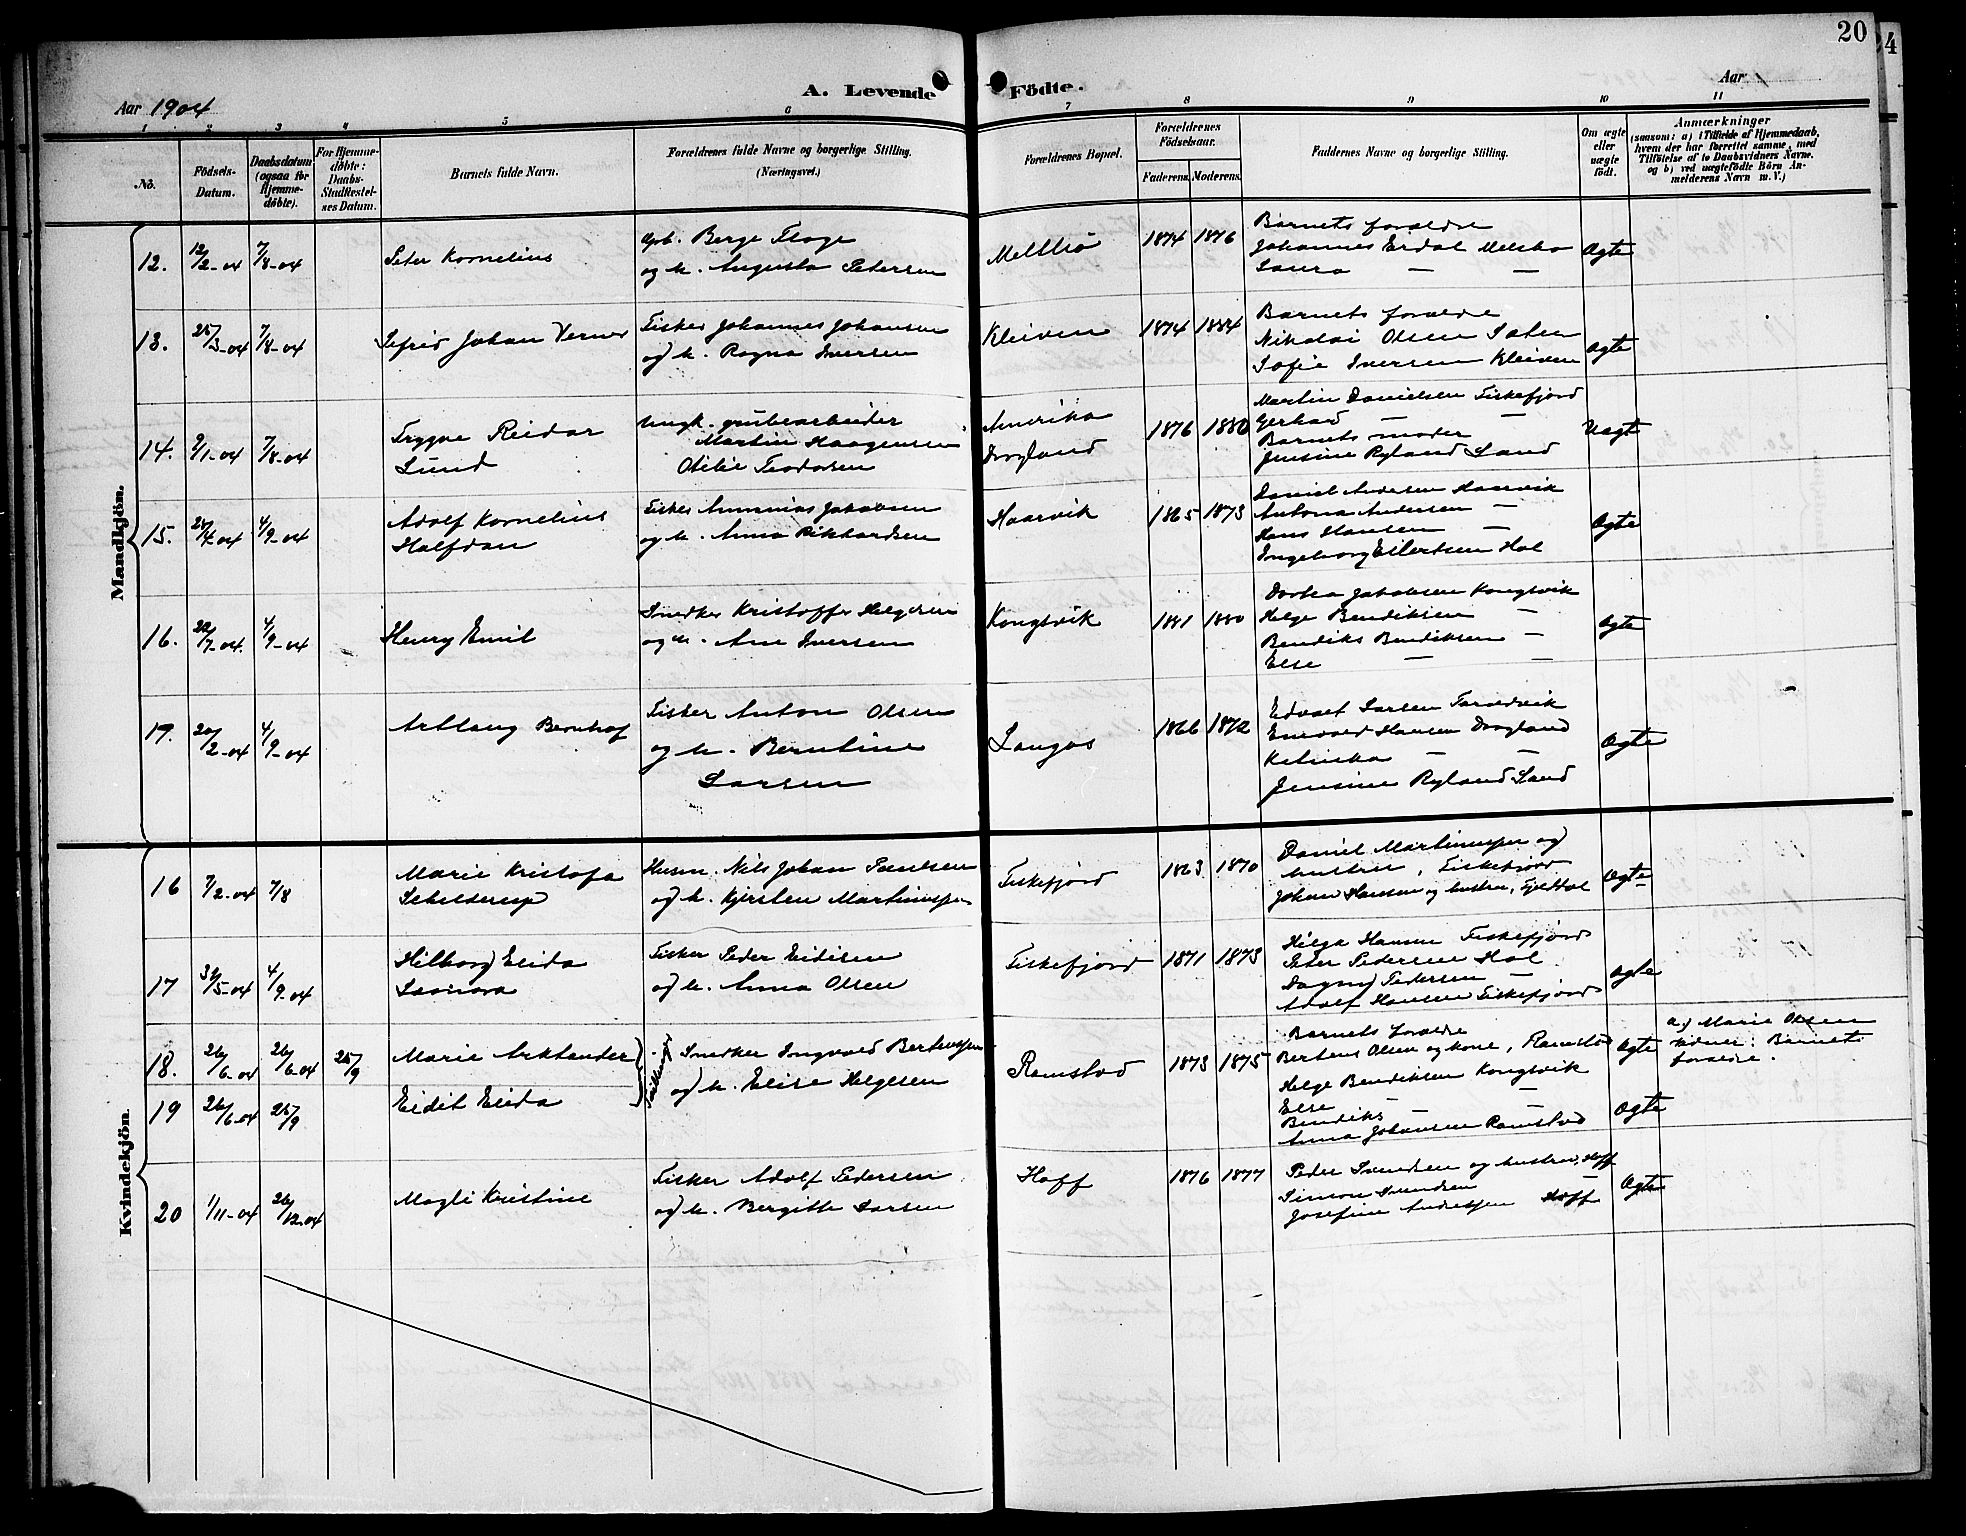 20
4
Aar 1904
A. Levende Födte.
Aar
1 2 3 4 5 6 7 8 9 10 11
No.
Födsels-
Datum.
Daabsdatum
(ogsaa for
Hjemme-
döbte).
For Hjemme-
döbte:
Daabs-
Stadfestel-
ses Datum.
Barnets fulde Navn.
Forældrenes fulde Navne og borgerlige Stilling.
(Næringsvei.)
Forældrenes Bopæl.
Forældrenes
Födselsaar.
Faderens. Moderens.
Faddernes Navne og borgerlige Stilling.
Om ægte
eller
uægte
født.
Anmærkninger
(saasom: a) i Tilfælde af Hjemmedaab,
hvem der har forrettet samme, med
Tilföielse af to Daabsvidners Navne.
og b) ved uægtefödte Börn An-
melderens Navn m. V.)
Mandkjön.
12. 12/2-04 7/8-04 Peter Kornelius
Berge Floge
og h. Augusta Petersen
1874 1876
Barnets forældre
Johannes Erdal
Laura — —
Ægte
13. 25/3-04 7/8-04 Sefrid Johan Verner
Fisker Johannes Johansen
og h. Ragna Iversen
Kleiven 1874 1884
Barnets forældre
Nikolai Olsen
Sofie Iversen Kleiven
Ægte
14. 9/1-04 7/8-04 Trygve Reidar
Lund
Ungk. grubearbeider
Martin Haagensen
Otilie Teodorsen
Amerika
Drogland
1876 1880
Martin Danielsen Fiskefjord
Gerhard — —
Barnets moder
Jensine Ryland Sand
Uægte
15. 28/4-04 4/9-04 Adolf Kornelius
Halfdan
Fisker Annanias Jakobsen
og h. Anna Rikhardsen
Haarvik 1865 1873
Daniel Andersen Haarvik
Antona Andersen —
Hans Hansen —
Ingeborg Eilertsen Hol
Ægte
16. 22/7-04. 4/9-04 Henry Emil
Snedker Kristoffer Helgesen
og h. Ane Iversen
Kongsvik 1881 1880
Dortea Jakobsen Kongsvik
Helge Bendiksen —
Bendiks Bendiksen —
Else — —
Ægte
19. 20/2-04 4/9-04 Bernhof
Fisker Anton Olsen
og h. Berntine
Larsen
1866 1872
Edvart Larsen
Enevold Hansen Drogland
— —
Jensine Ryland Sand
Ægte
Kvindekjön.
16 7/2-04 7/8 Marie Kristofa
Schelderup
Husm. Nils Johan Paulsen
og h. Kjersten Martinussen
Fiskefjord 1863 1870
Daniel Martinussen og
hustru, Fiskefjord
Johan Hansen og hustru, Fjelldal
Ægte
17 31/5-04 4/9-04 Hilborg Elida
Leonora
Fisker Peder Eidisen
og h. Anna Olsen
Fiskefjord 1871 1873
Helga Hansen Fiskefjord
Peter Pedersen Hol
Dagny Pedersen —
Adolf Hansen Fiskefjord
Ægte
18. 26/6-04 26/6-04 25/9 Marie Arktander
Snedker Ingvald Berteussen
og h. Elise Helgesen
Ramstad 1873 1875
Barnets forældre
Berteus Olsen og kone, Ramstad
Helge Bendiksen Kongsvik
Ægte
a) Marie Olsen
Vidner: Barnets
forældre.
19 26/6-04 25/9 Eidit Elida
Else — —
Bendiks —
Anna Johansen Ramstad
Ægte
20 1/11-04 26/12-04 Magli Kristine
Fisker Adolf Pedersen
og h. Bergitte Larsen
Hoff 1876 1877
Peder Svendsen og hustru, Hoff
Simon Svendsen —
Josefine Andressen Hoff
Ægte